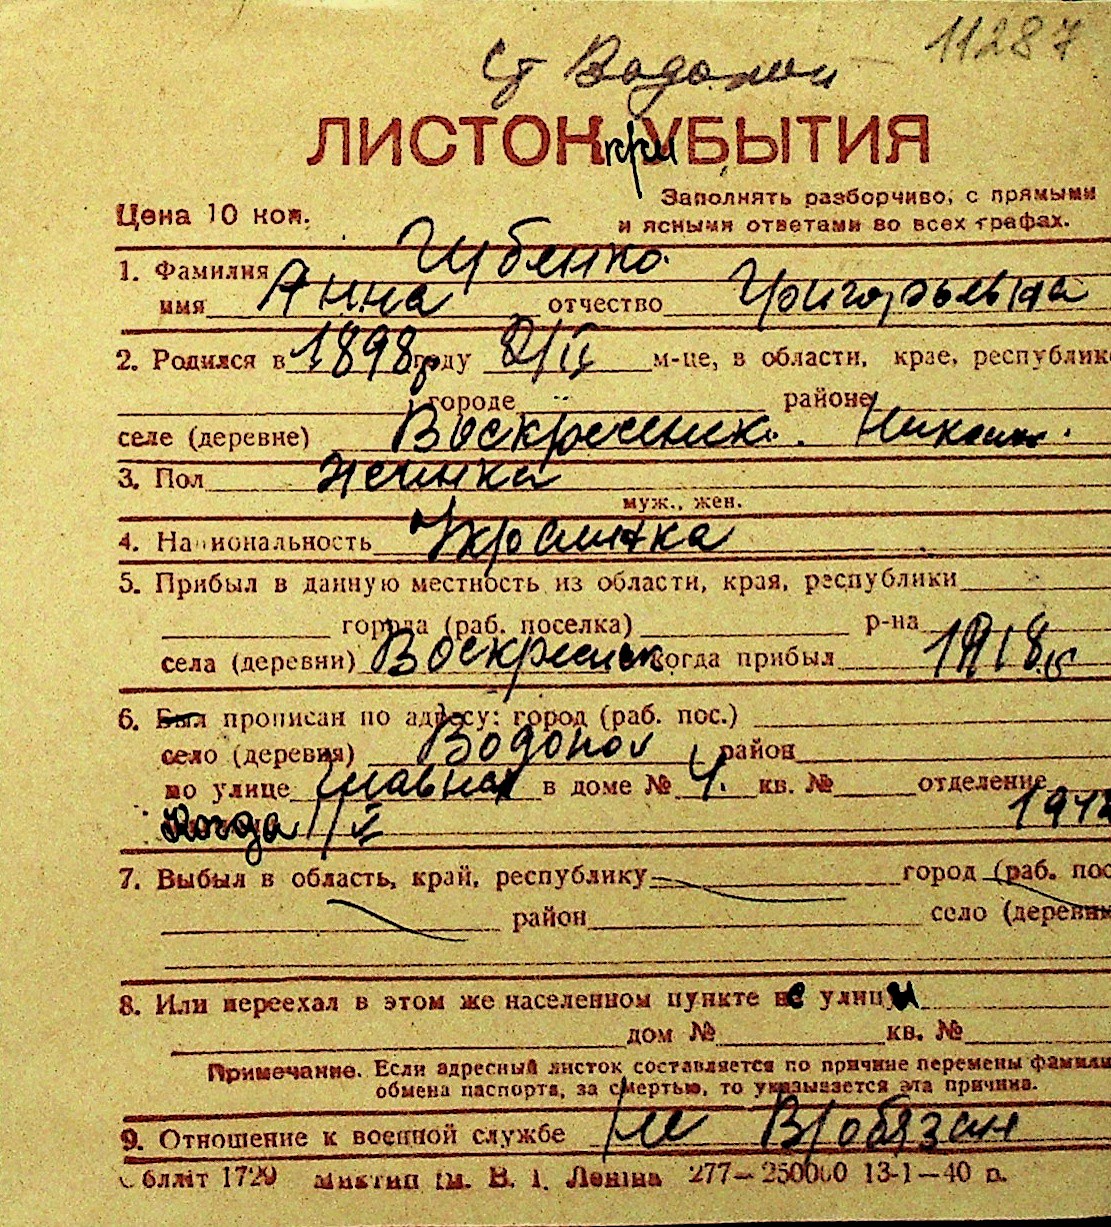 11287
Ст Водопой
ЛИСТОК при УБЫТИЯ
Заполнять разборчиво, с прямыми
Цена 10 коп.
и ясными ответами во всех графах.
1. Фамилия Губенко
имя Анна отчество Григорьевна
2. Родился в 1898 году 8/II м-це, в области, крае, республике
городе районе
селе (деревне) Воскресенск. Николаев.
3. Пол женска
муж., жен.
4. Национальность Украинка
5. Прибыл в данную местность из области, края, республики
города (раб. поселка) р-на
села (деревни) Воскресенск когда прибыл 1918
6. Был прописан по адресу: город (раб. пос.)
село (деревня) Водопой район
по улице Главная в доме № 4. кв. № отделение
Когда
7. Выбыл в область, край, республику город (раб. пос
район село (деревня
8. Или переехал в этом же населенном пункте не улицы
дом № кв. №
Примечание. Если адресный листок составляется по причине перемены фамили
обмена паспорта, за смертью, то указывается эта причина.
9. Отношение к военной службе Не В/обязан
білліт 1729 Миктип ім. В. І. Леніна 277—250000 13-1—40 р.